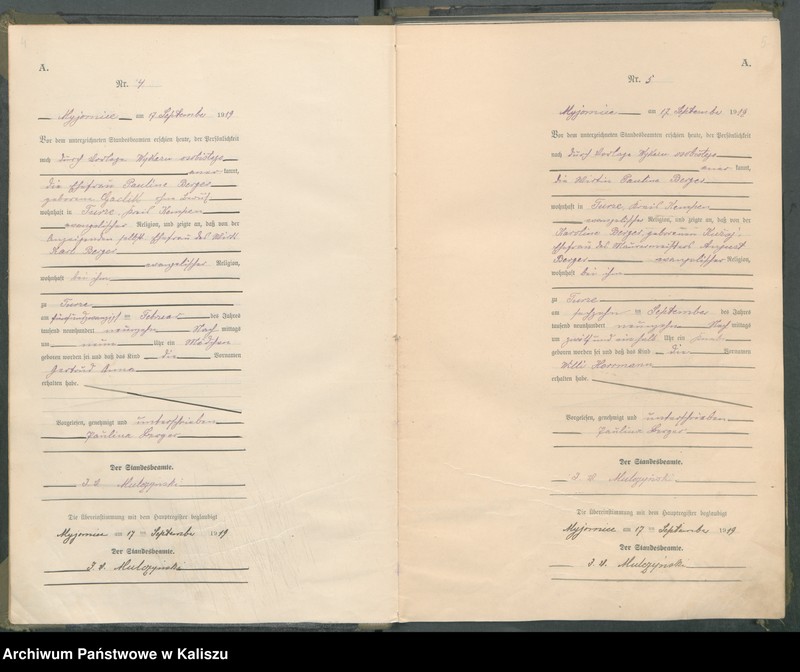 A.
Nr. 4
Myjomice am 17. September 1919
Vor dem unterzeichneten Standesbeamten erschien heute, der Persönlichkeit
nach durch Vorlage
kannt,
die Ehefrau Pauline Berger
geborene ohne Beruf
wohnhaft in Turze, Kreis Kempen
evangelischer Religion, und zeigte an, daß von der
anzeigenden selbst, Ehefrau des Wirts
Karl Berger
evangelischer Religion,
wohnhaft bei ihm
zu Turze
am fünfundzwanzigsten Februar des Jahres
tausend neunhundert neunzehn Nachmittags
um neun Uhr ein Mädchen
geboren worden sei und daß das Kind die Vornamen
Gertrud Anna
erhalten habe.
Vorgelesen, genehmigt und unterschrieben
Pauline Berger
Der Standesbeamte.
J. V. Mulczyński
Die Übereinstimmung mit dem Hauptregister beglaubigt
Myjomice am 17ten September 1919
Der Standesbeamte.
J. V. Mulczyński
5
A.
Nr. 5
Myjomice am 17. September 1919
Vor dem unterzeichneten Standesbeamten erschien heute, der Persönlichkeit
nach durch Vorlage
kannt,
die Wirtin Pauline Berger
wohnhaft in Turze, Kreis Kempen
evangelischer Religion, und zeigte an, daß von der
Karoline Berger geborenen
Ehefrau des Maurermeisters August
Berger evangelischer Religion,
wohnhaft bei ihm
zu Turze
am sechzehnten September des Jahres
tausend neunhundert neunzehn Nachmittags
um zwölf und einhalb Uhr ein Knabe
geboren worden sei und daß das Kind die Vornamen
Willi Herrmann
erhalten habe.
Vorgelesen, genehmigt und unterschrieben
Pauline Berger
Der Standesbeamte.
J. V. Mulczyński
Die Übereinstimmung mit dem Hauptregister beglaubigt
Myjomice am 17ten September 1919
Der Standesbeamte.
J. V. Mulczyński
Archiwum Państwowe w Kaliszu